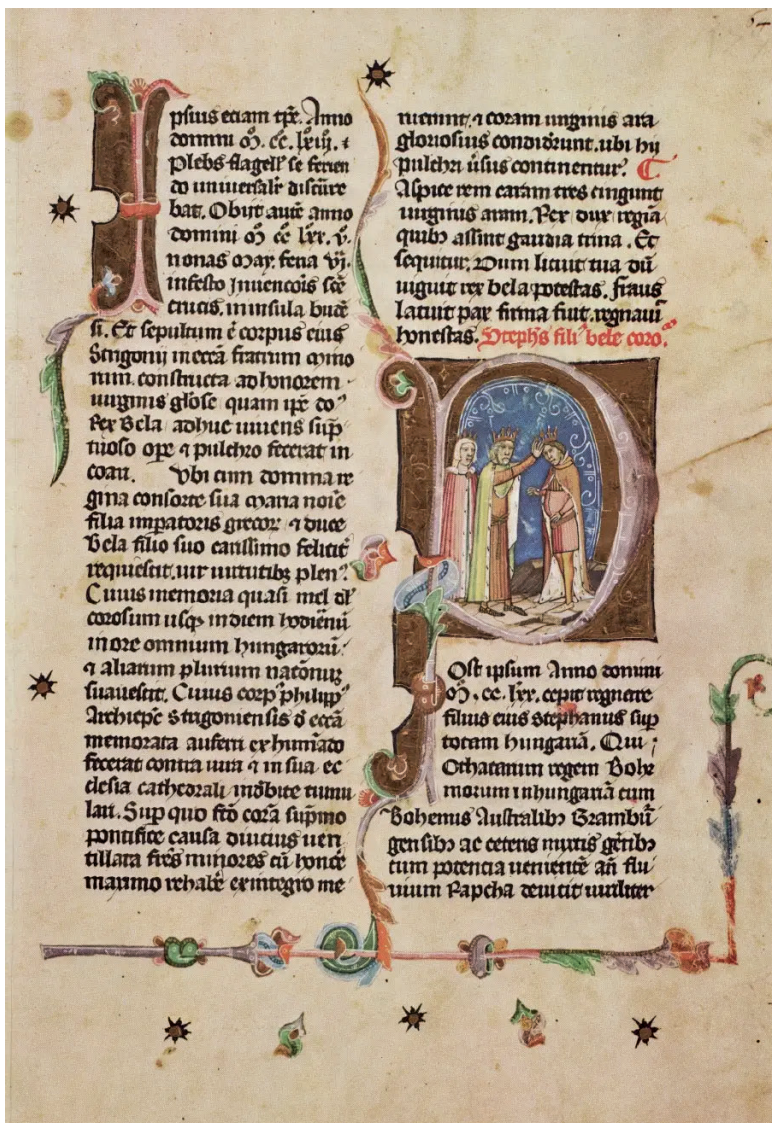 Ipsius eciam tp̄e. Anno
domini Mͦ. cͨc. lxiij. ⁊
Plebs flagell' se ferien
do uniuersalr̄ discurre
bat. Obijt autē anno
domini Mͦ cͨc lxx. v.
nonas May. feria vj.
infesto Jnuencōis scē
crucis. in insula budē
si. Et sepultum ē corpus eius
Strigonij in eccā fratrum mino
rum. constructa ad honorem
uirginis glōse quam ip̄e do
Rex Bela adhuc uiuens sūp
tuoso opē ⁊ pulchro fecerat in
coari. Vbi cum domina re
gina consorte sua Maria noīe
filia imp̄atoris grecor̄ ⁊ duce
Bela filio suo carissimo felicit̄
requiescit. uir uirtutibꝫ plen⁹.
Cuius memoria quasi mel dl̄
corosum usqꝫ in diem hodiernū
in ore omnium hungarorū
⁊ aliarum plurium nacōnuꝫ
suauescit. Cuius corp⁹ philipp⁹
Archiep̄c Strigoniensis d̄ eccā
memorata auferri exhumādo
fecerat contra iura ⁊ in sua ec
clesia cathedrali indebite tumu
lari. Sup̄ quo fcō corā sup̄mo
pontifice causa diucius uen
tillata fr̄es minores cū honore
maximo rehabē ex integro me
ruerunt. ⁊ coram uirginis ara
gloriosius condiderunt. ubi hij
pulchri ūsus continentur.
Aspice rem caram tres cingunt
uirginis aram. Rex dux regīa
quibꝫ assint gaudia trina. Et
sequitur. Dum licuit tua dū
uiguit rex bela potestas. fraus
latuit pax firma fuit. regnauī
honestas. Stephs fili⁹ bele coro.
Post ipsum Anno domini
Mͦ. cc. lxx. cepit regnare
filius eius Stephanus sup̄
totam hungariā. Qui
Othacarum regem Bohe
morum in hungariā cum
Bohemis Australibꝫ Brambū
gensibꝫ ac ceteris mixtis gētibꝫ
cum potencia uenientē añ flu
uium Rapcha deuicit uiriliter